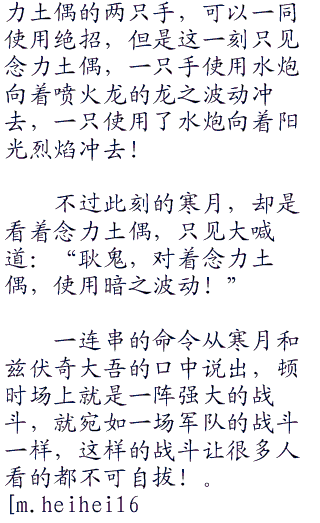 力土偶的两只手，可以一同
使用绝招，但是这一刻只见
念力土偶，一只手使用水炮
向着喷火龙的龙之波动冲
去，一只使用了水炮向着阳
光烈焰冲去！
不过此刻的寒月，却是
看着念力土偶，只见大喊
道：“耿鬼，对着念力土
偶，使用暗之波动！”
一连串的命令从寒月和
兹伏奇大吾的口中说出，顿
时场上就是一阵强大的战
斗，就宛如一场军队的战斗
一样，这样的战斗让很多人
看的都不可自拔！。
[m.heihei16